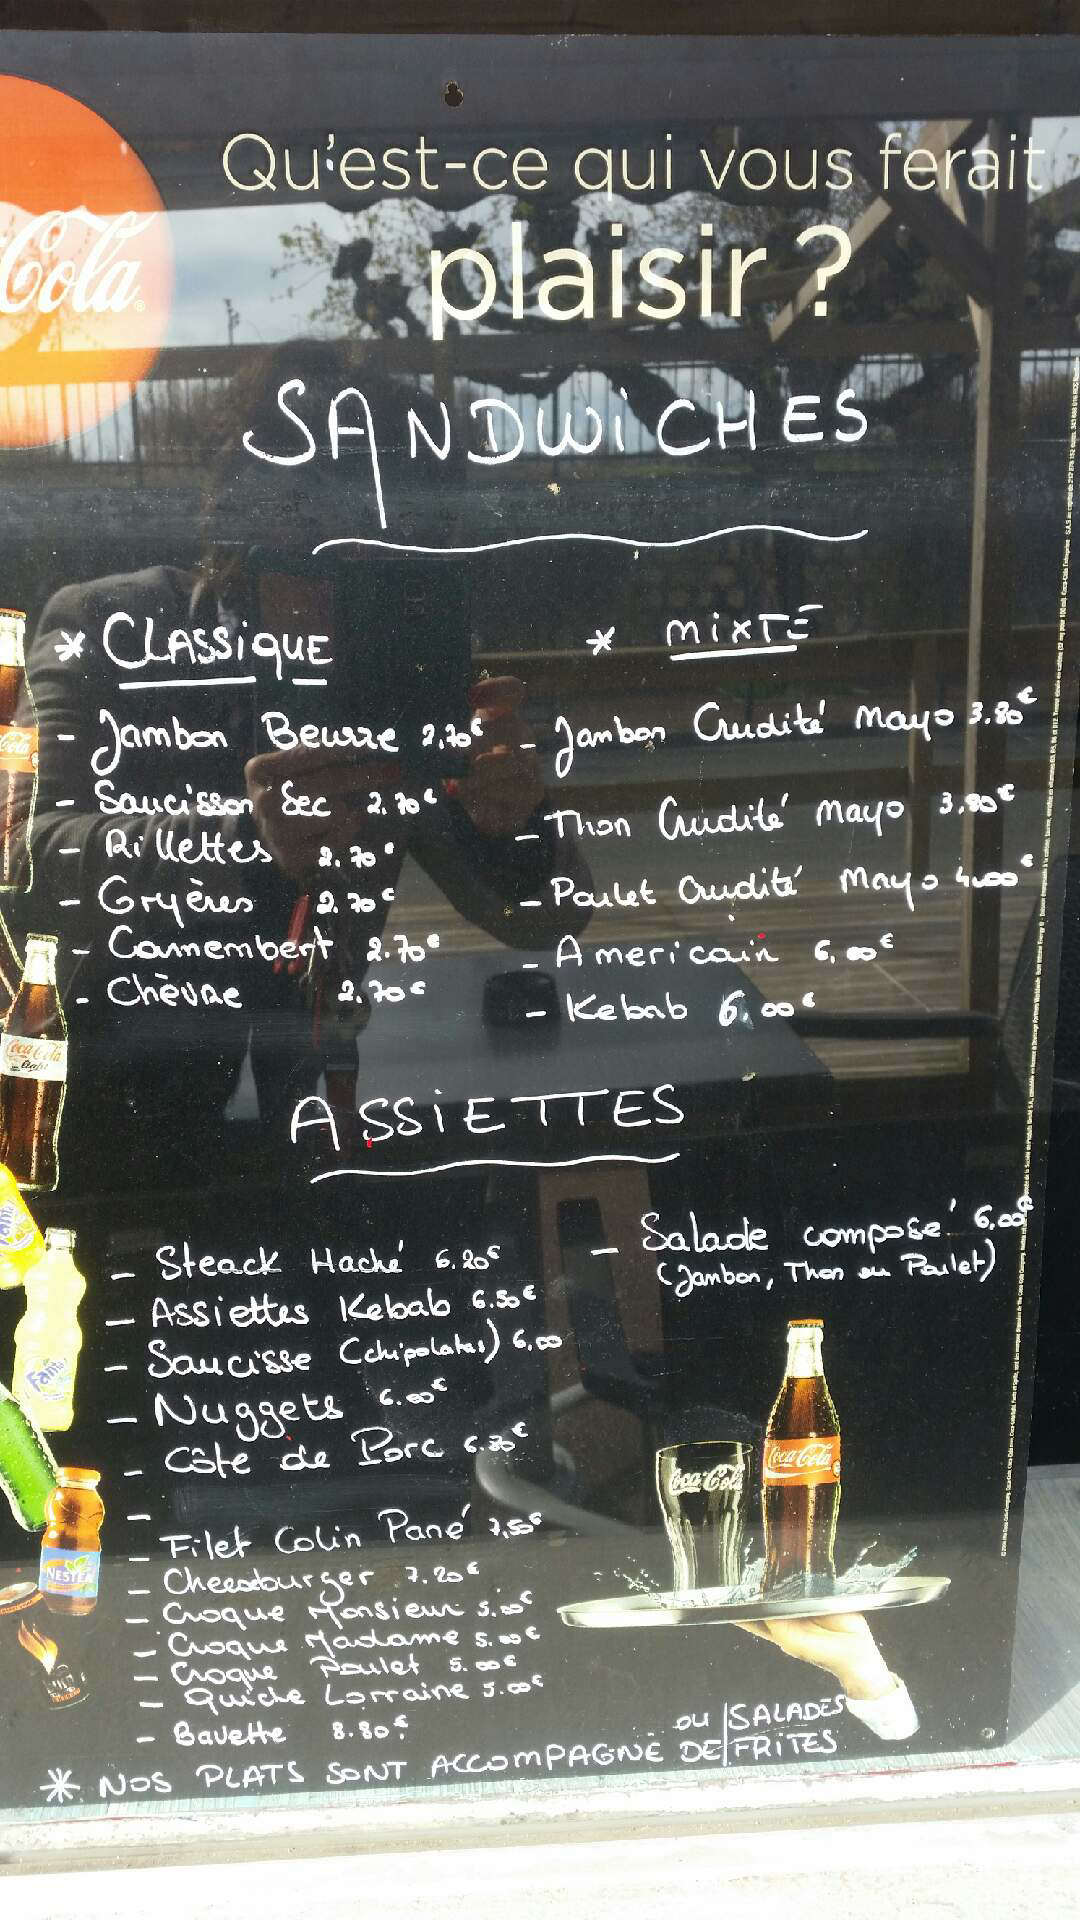 Cola
Qu'est-ce qui vous ferait
plaisir ?
SANDWiCHES
* CLASSiqUE
- Jambon Beurre 2,70€
- Saucisson Sec 2.70€
- Rillettes 2.70€
- Gryères 2.70€
- Camembert 2.70€
- Chèvre 2.70€
* MiXTE
- Jambon Crudité Mayo 3.80€
- Thon Crudité Mayo 3,80€
- Poulet Crudité Mayo 4.00€
- Americain 6,00€
- Kebab 6.00€
ASSiETTES
- Steack Haché 6.20€
- Assiettes Kebab 6.50€
- Saucisse (chipolatas) 6,00
- Nuggets 6.00€
- Côte de Porc
-
- Filet Colin Pané 7,50€
- Cheeseburger 7.20€
- Croque Monsieur 5.00€
- Croque Madame 5.00€
- Croque Poulet 5.00€
- Quiche Lorraine 5.00€
- Bavette 8.80€
- Salade composé 6,00€
(Jambon, Thon ou Poulet)
Coca-Cola
Coca-Cola
Cola
Coca-Cola
light
Fanta
Fanta
NESTEA
* NOS PLATS SONT ACCOMPAGNÉ DE SALADES
OU FRITES